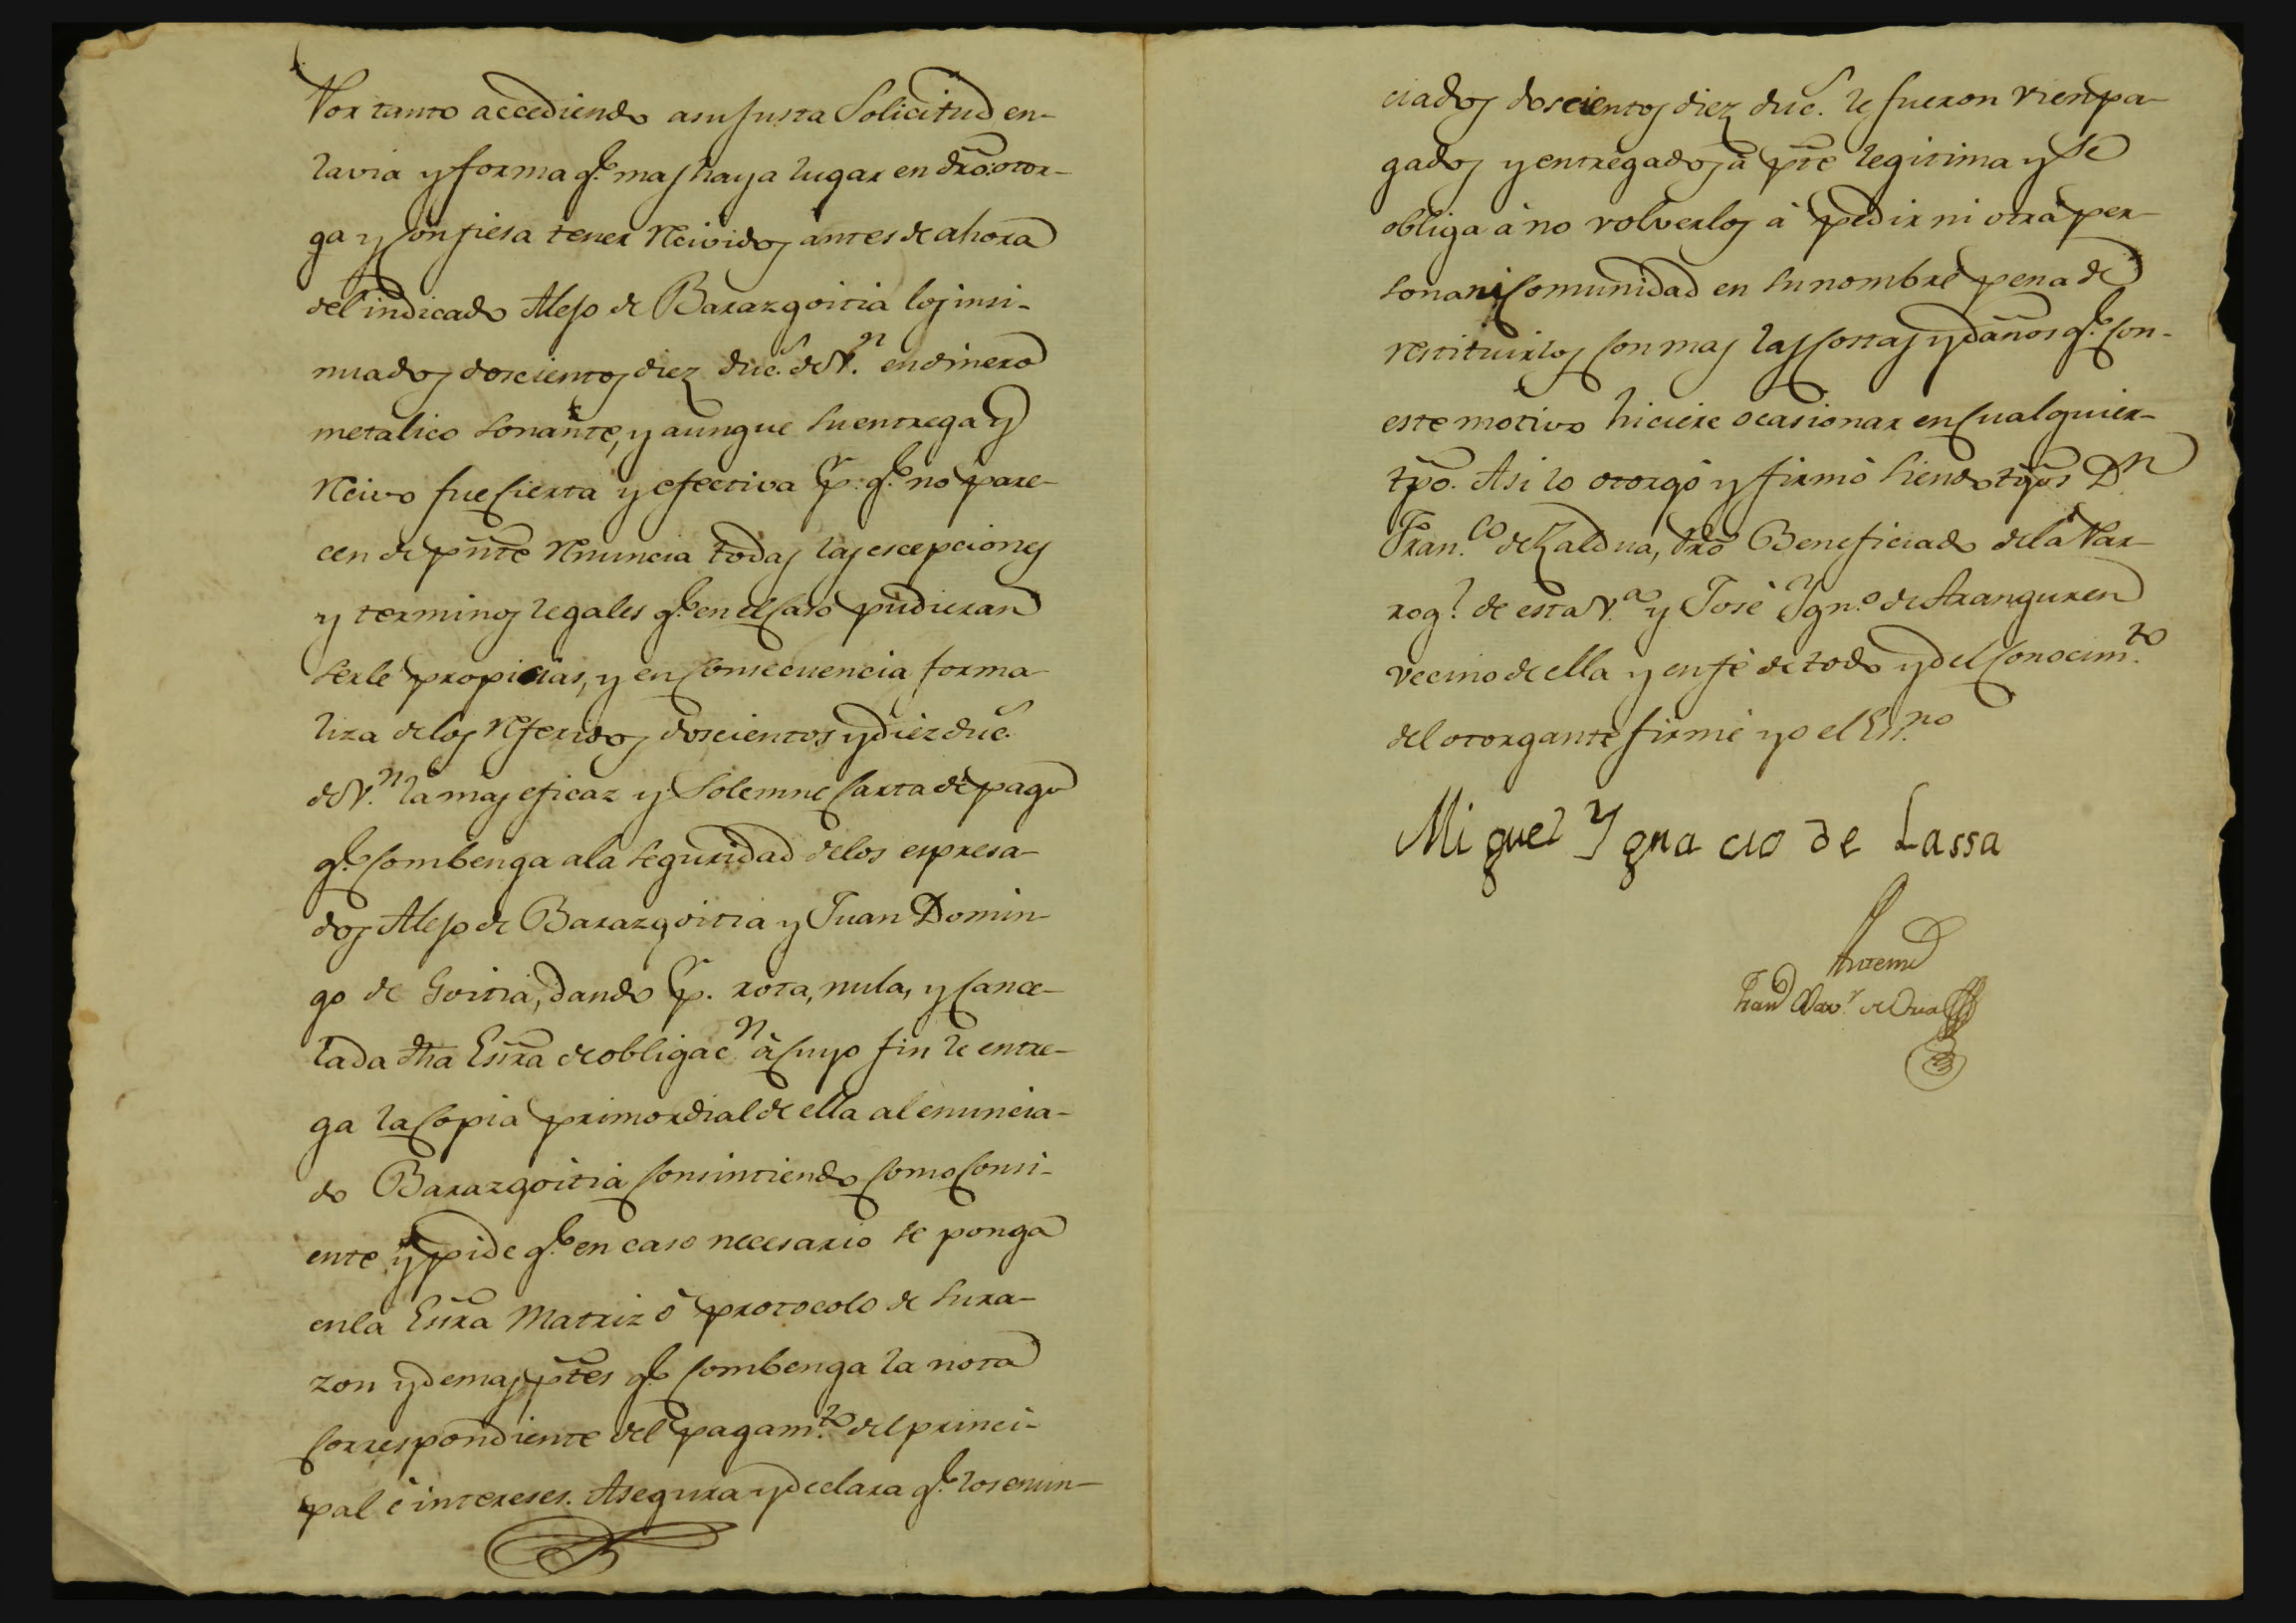 Por tanto accediendo asu Justa Solicitud en-
lavia y forma q.e mas haya lugar en dro: otor-
ga y Confiesa tener Reividos antes de ahora
del indicado Alejo de Barazgoitia los insi-
nuados doscientos diez duc.s de V.n en dinero
metalico sonante, y aunque su entrega y
Reivo fue Cierta y efectiva p.r q.e no pare-
cen de pnte Renuncia todas las escepciones
y terminos legales q.e en el Caso pudieran
serle propicias, y en Consecuencia forma-
liza delos Referidos doscientos y diez duc.s
de V.n la mas eficaz y Solemne Carta de pago
q.e Combenga ala seguridad delos expresa-
dos Alejo de Barazgoitia y Juan Domin-
go de Goitia, dando p.r rota, nula, y Cance-
lada dha Essra de obligac.n à Cuyo fin le entre-
ga la Copia primordial de ella al enuncia-
do Barazgoitia Consintiendo Como Consi-
ente y pide q.e en caso necesario se ponga
enla Essra Matriz ò protocolo de su ra-
zon y demas ptes q.e Combenga la nota
Correspondiente del pagam.to del princi-
pal è intereses. Asegura y declara q.e los enun-
ciados doscientos diez duc.s le fueron vien pa-
gados y entregados à pte legitima y se
obliga à no volverlos à pedir ni otra per-
sona ni Comunidad en su nombre pena de
restituirlos Con mas las Costas y daños q.e Con-
este motivo hiciere ocasionar en Cualquier-
tpo. Asi lo otorgò y firmò siendo tgos D.n
Fran.co de Zaldua, Pro Beneficiado dela Par-
roq.l de esta V.a y Josè Ygn.o de Aranguren
vecino de ella y en fè de todo y del Conocim.to
del otorgante firmè yo el Ess.no
Miguel Ygnacio de Lassa
Antemi